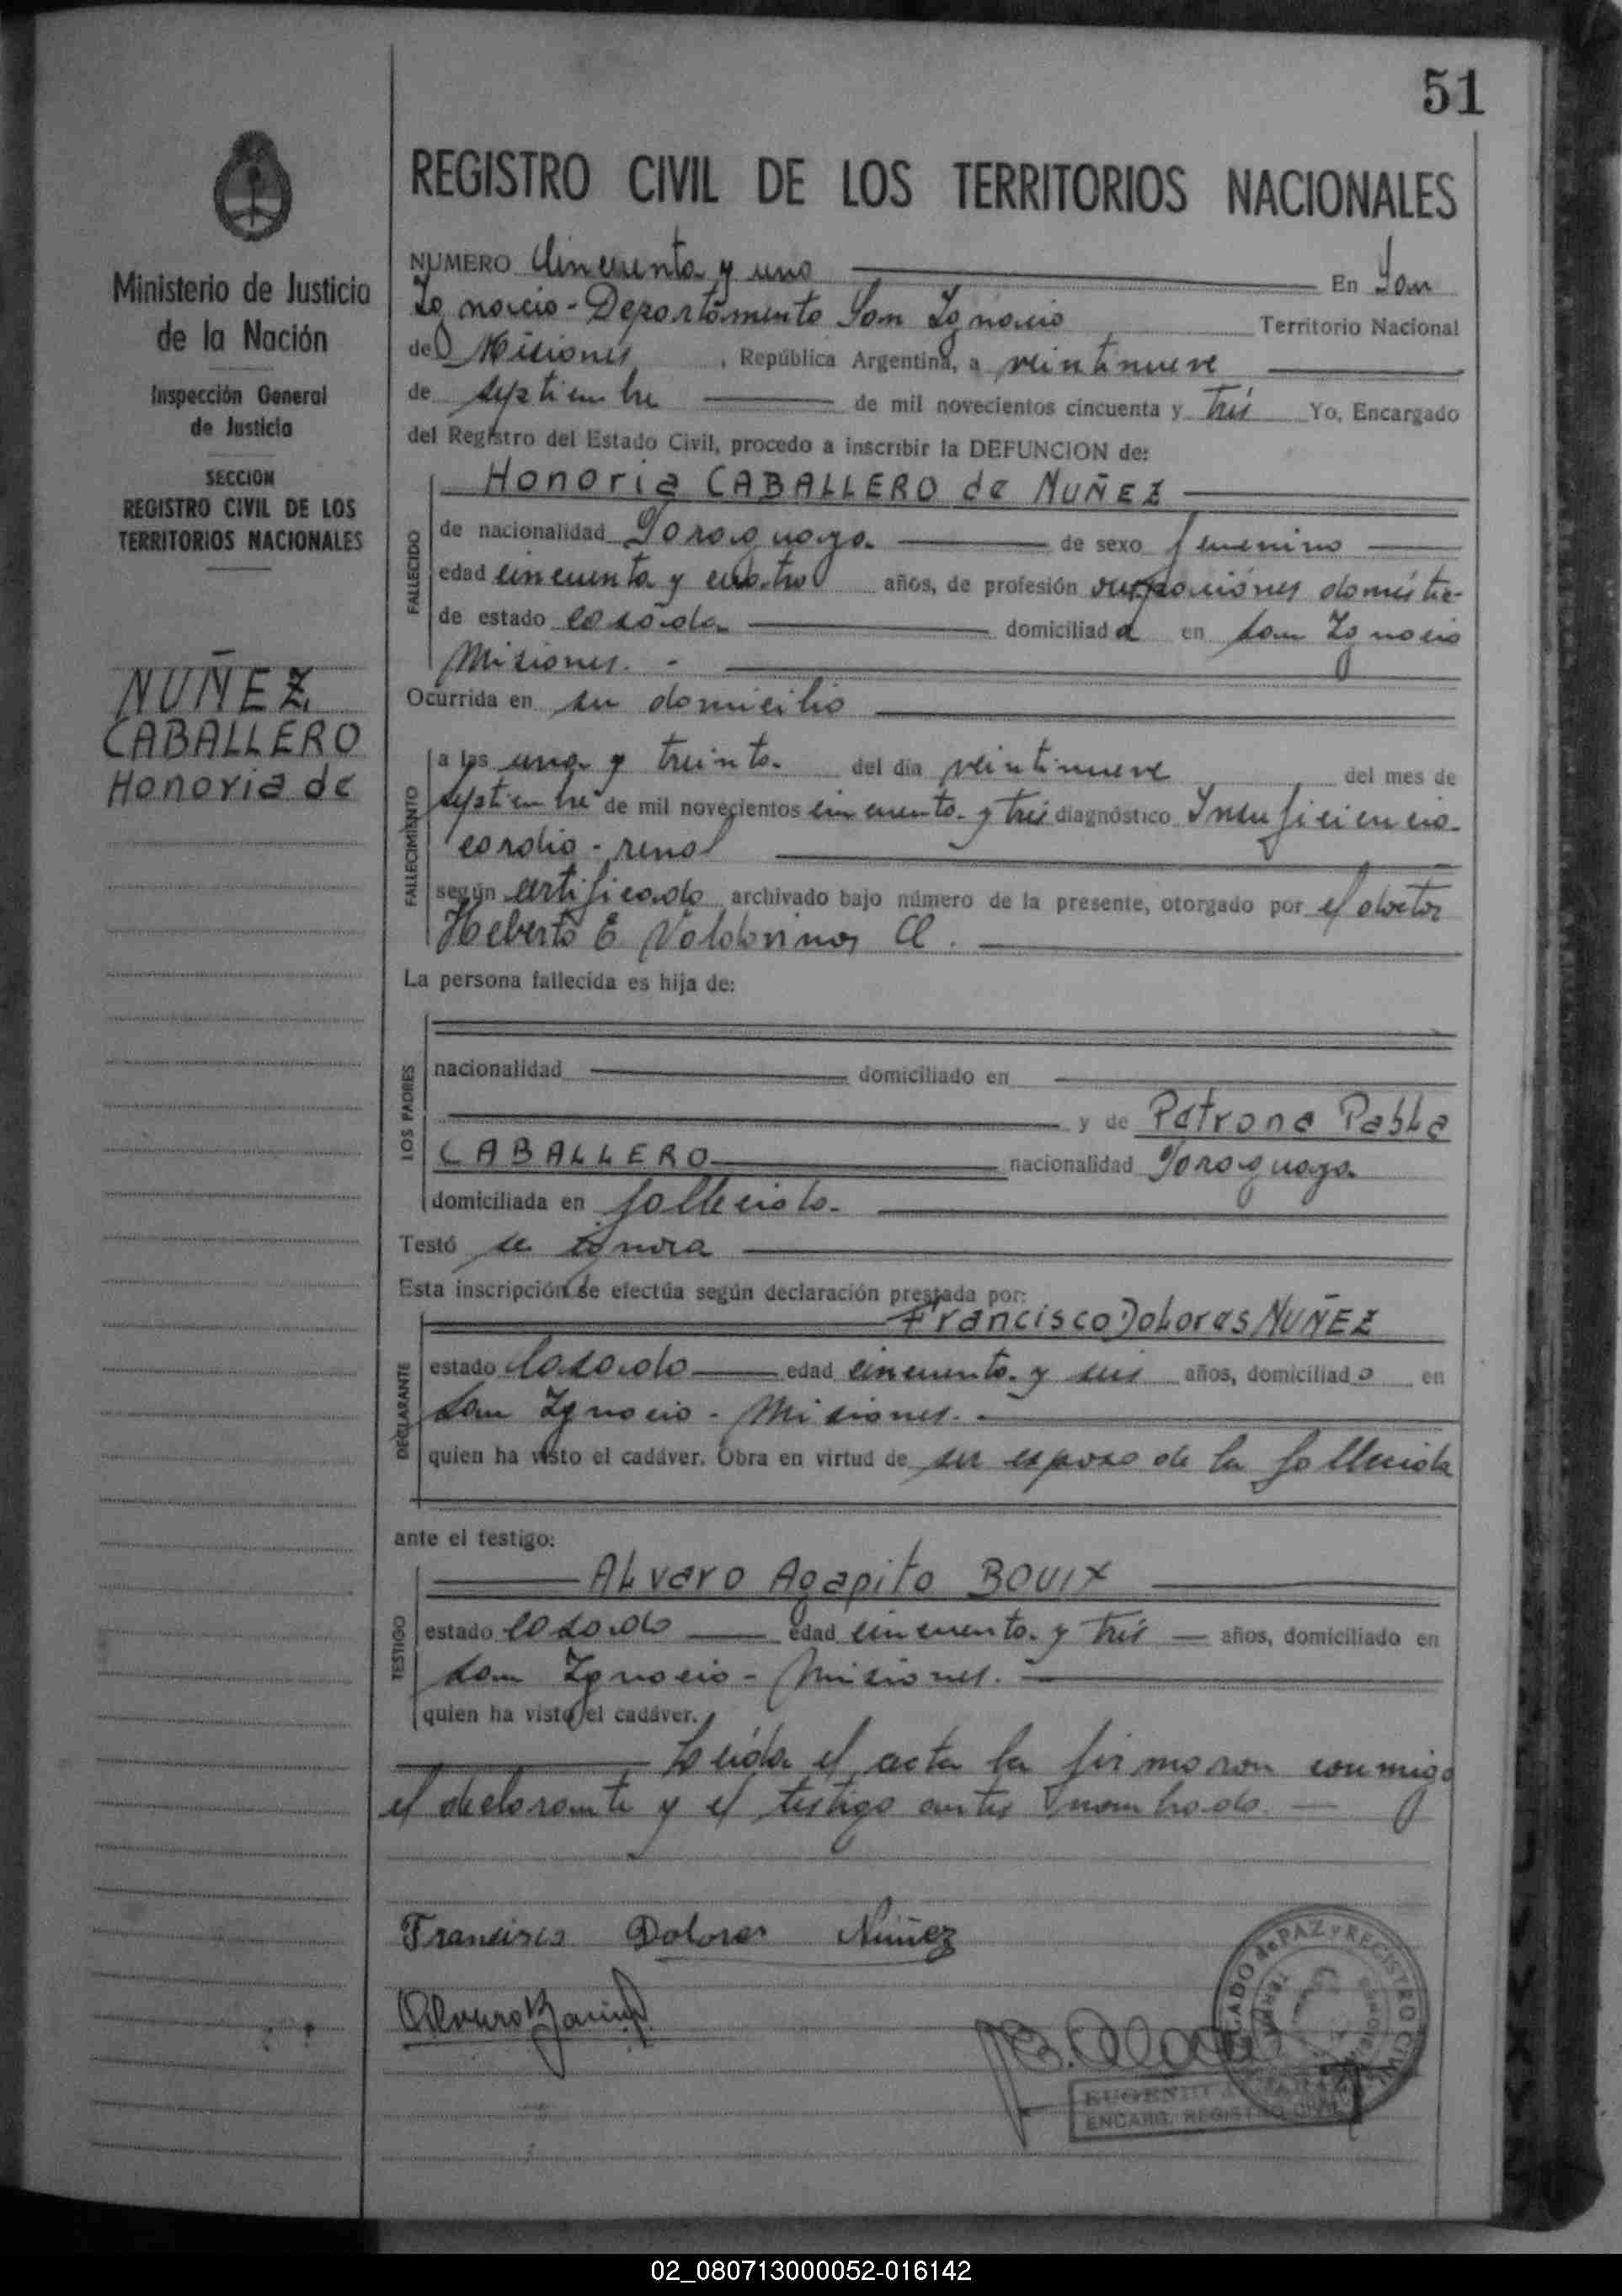 51
REGISTRO CIVIL DE LOS TERRITORIOS NACIONALES
Ministerio de Justicia
de la Nación
Inspección General
de Justicia
SECCION
REGISTRO CIVIL DE LOS
TERRITORIOS NACIONALES
NUÑEZ
CABALLERO
Honoria de
NUMERO Cincuenta y uno En San
Ignacio - Departamento San Ignacio Territorio Nacional
de Misiones, República Argentina, a veintinueve
de septiembre de mil novecientos cincuenta y tres Yo, Encargado
del Registro del Estado Civil, procedo a inscribir la DEFUNCION de:
FALLECIDO
Honoria CABALLERO de NUÑEZ
de nacionalidad Paraguaya de sexo femenino
edad cincuenta y cuatro años, de profesión domestic-
de estado casada domiciliada en San Ignacio
Misiones. -
Ocurrida en su domicilio
FALLECIMIENTO
a las una y treinta del día veintinueve del mes de
septiembre de mil novecientos cincuenta y tres diagnóstico Insuficiencia
cardio-renal
según certificado archivado bajo número de la presente, otorgado por el doctor
Heberto E Valdovinos
La persona fallecida es hija de:
LOS PADRES
nacionalidad domiciliado en
y de Petrona Pabla
CABALLERO nacionalidad Paraguaya
domiciliada en fallecida
Testó se ignora
Esta inscripción se efectúa según declaración prestada por:
DECLARANTE
Francisco Dolores NUÑEZ
estado Casado edad cincuenta y seis años, domiciliado en
San Ignacio - Misiones. -
quien ha visto el cadáver. Obra en virtud de ser esposo de la fallecida
ante el testigo:
TESTIGO
ALvaro Agapito BOUIX
estado casado edad cincuenta y tres años, domiciliado en
San Ignacio - Misiones. -
quien ha visto el cadáver.
Leída el acta la firmaron conmigo
el declarante y el testigo antes nombrado. -
Francisco Dolores Núñez
JUZGADO de PAZ y REGISTRO CIVIL
EUGENIO
ENCARG. REGISTRO CIVIL
02_080713000052-016142